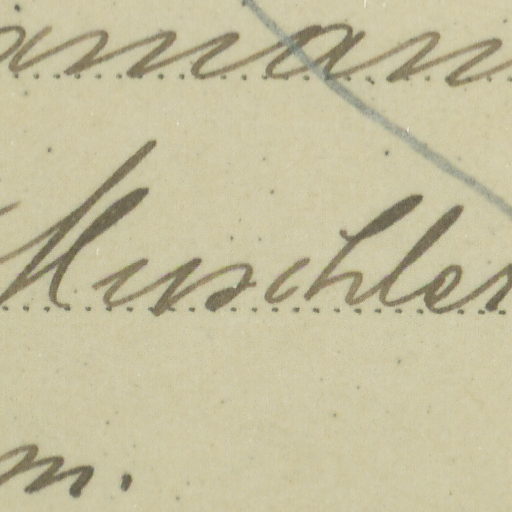 aman
Muschler
m.